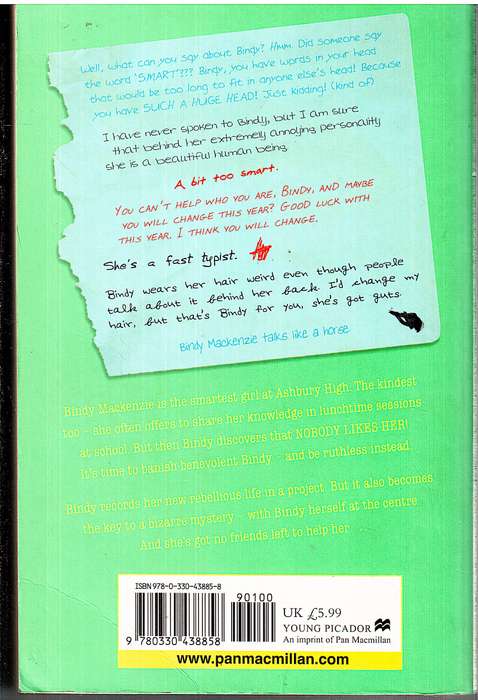 Well, what can you say about Bindy? Hmm. Did someone say
the word 'SMART'??? Bindy, you have words in your head
that would be too long to fit in anyone else's head! Because
you have SUCH A HUGE HEAD! Just kidding! (kind of)
I have never spoken to Bindy, but I am sure
that behind her extremely annoying personality
she is a beautiful human being.
A bit too smart.
YOU CAN'T HELP WHO YOU ARE, BINDY, AND MAYBE
YOU WILL CHANGE THIS YEAR? GOOD LUCK WITH
THIS YEAR. I THINK YOU WILL CHANGE.
She's a fast typist.
Bindy wears her hair weird even though people
talk about it behind her back. I'd change my
hair, but that's Bindy for you, she's got guts.
Bindy Mackenzie talks like a horse
Bindy Mackenzie is the smartest girl at Ashbury High. The kindest
too – she often offers to share her knowledge in lunchtime sessions
at school. But then Bindy discovers that NOBODY LIKES HER!
It's time to banish benevolent Bindy – and be ruthless instead.
Bindy records her new rebellious life in a project. But it also becomes
the key to a bizarre mystery – with Bindy herself at the centre.
And she's got no friends left to help her.
ISBN 978-0-330-43885-8
90100
9 780330 438858
UK £5.99
YOUNG PICADOR
An imprint of Pan Macmillan
www.panmacmillan.com